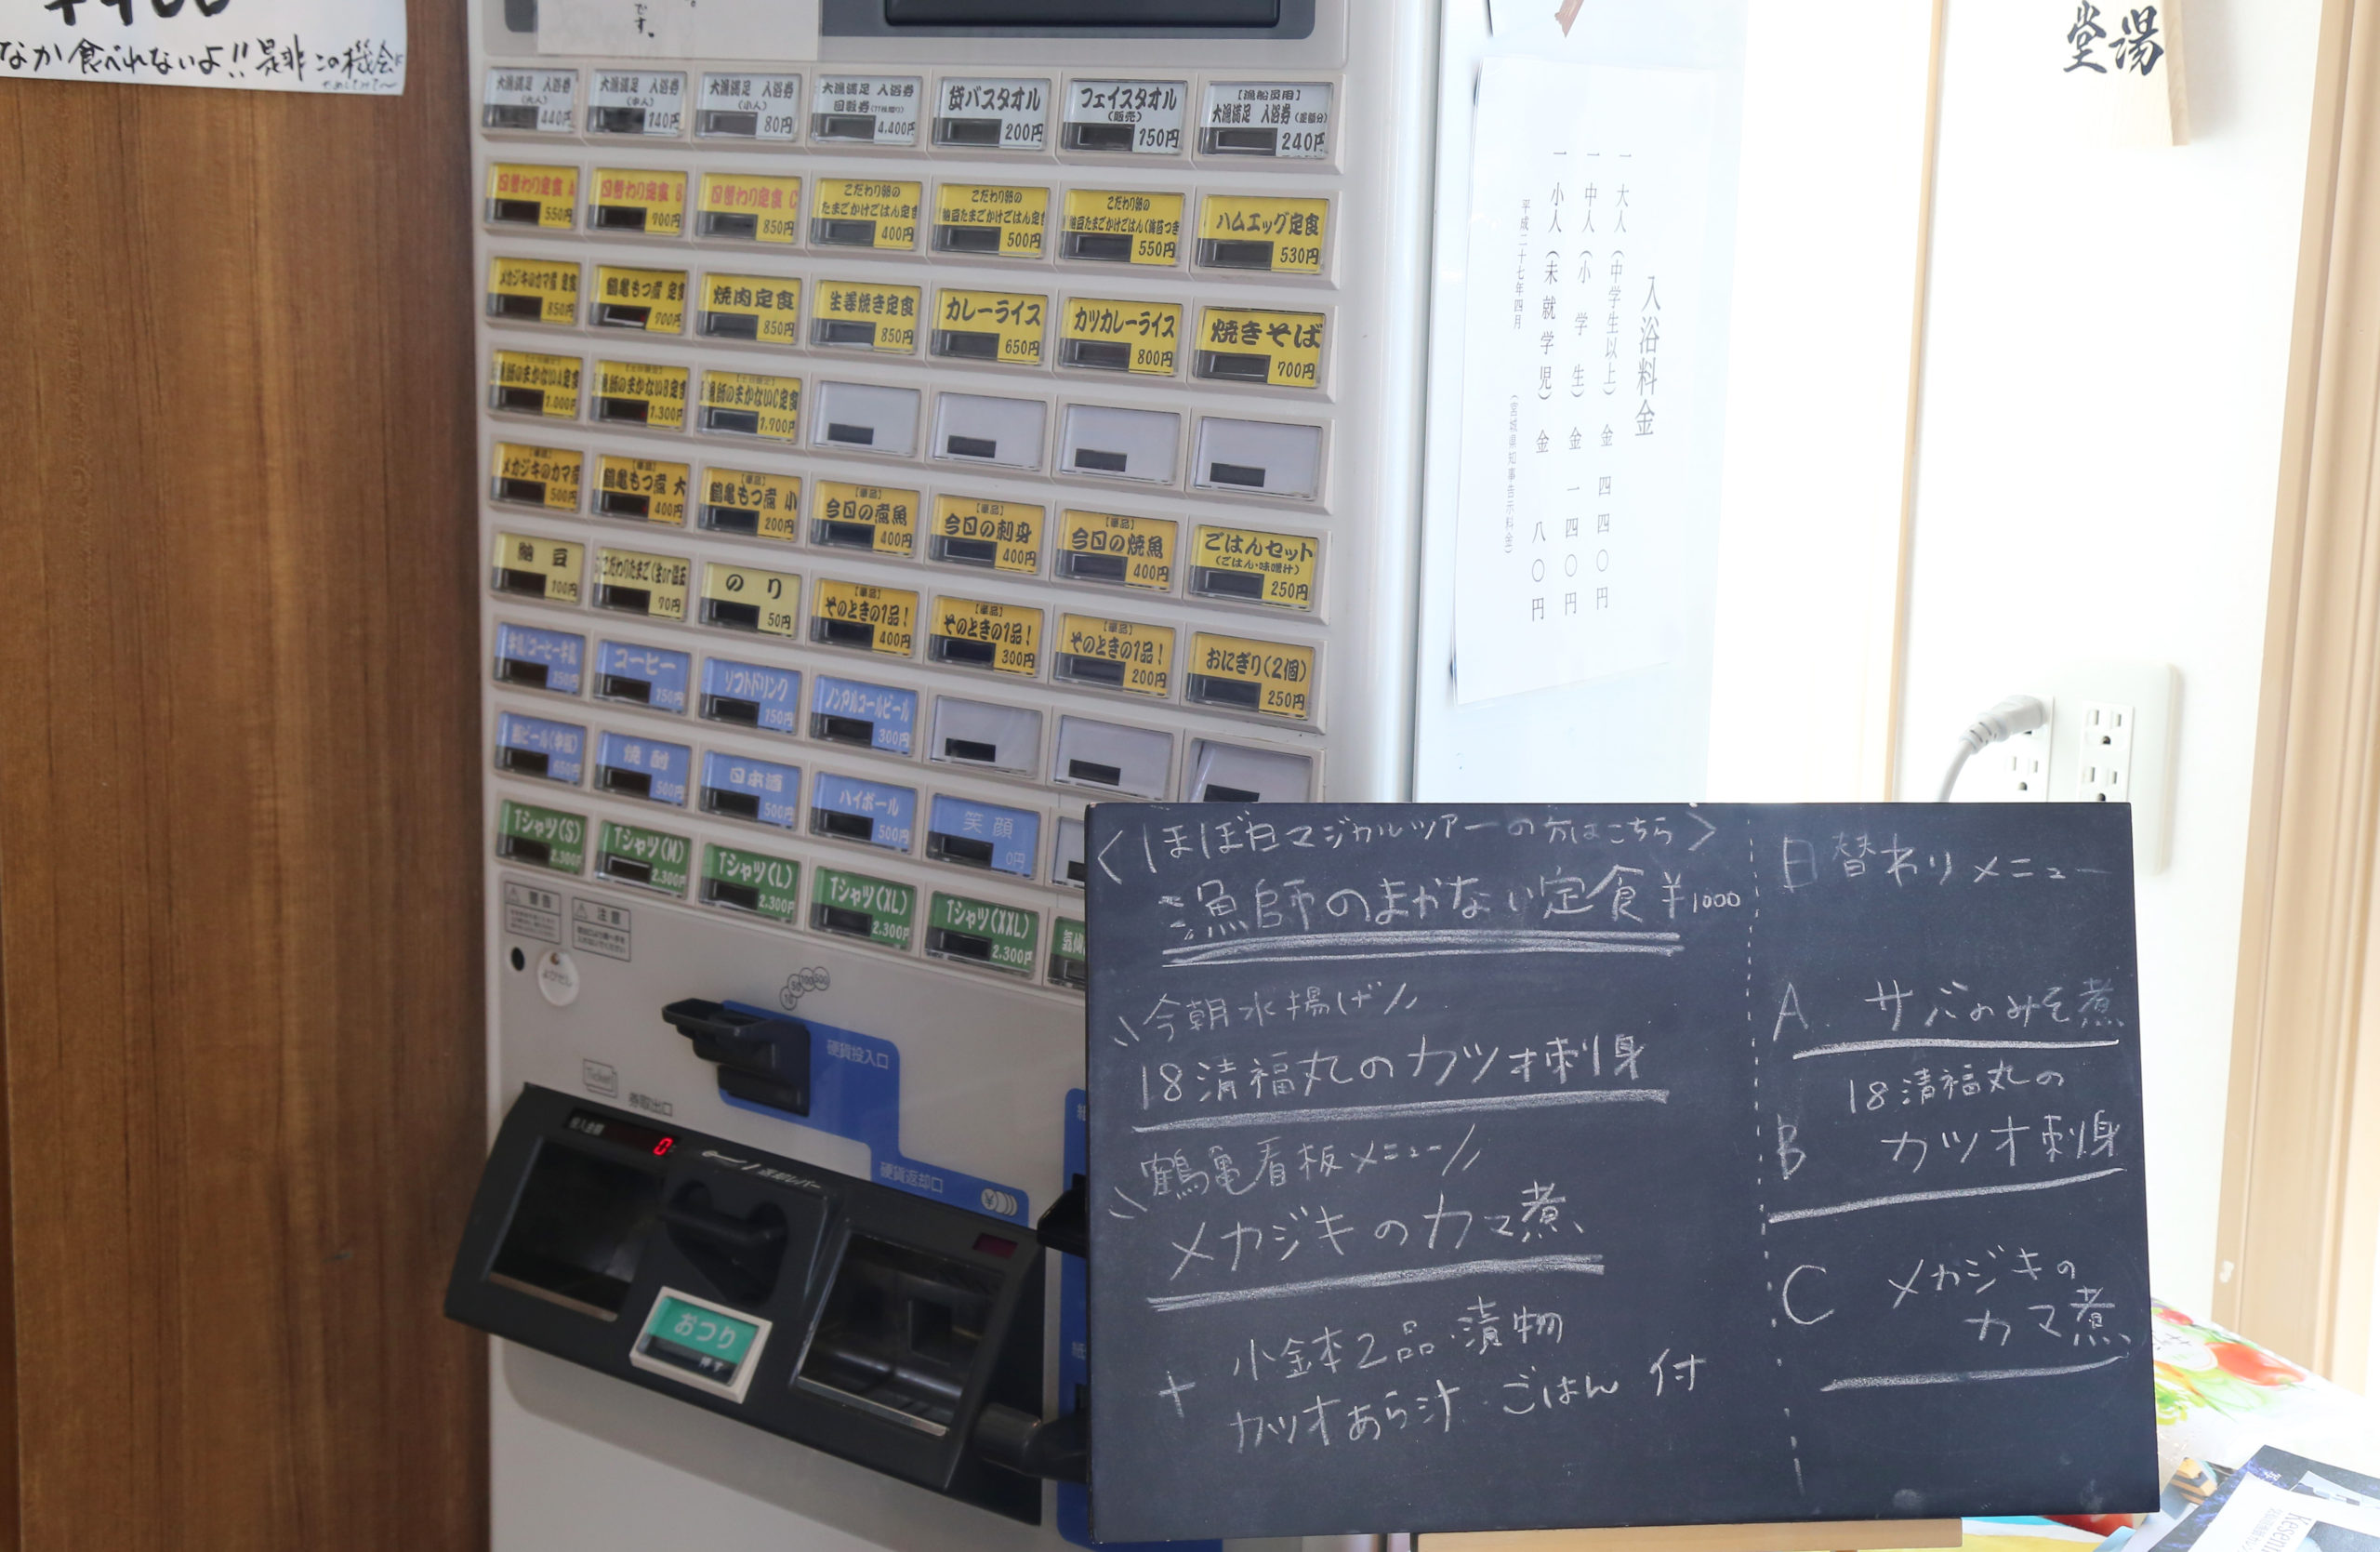 なか食べれないよ!!是非この機会に
です。
大漁満足 入浴券
(大人)
440円
大漁満足 入浴券
(中人)
140円
大漁満足 入浴券
(小人)
80円
大漁満足 入浴券
回数券
4,400円
貸バスタオル
200円
フェイスタオル
(販売)
150円
大漁満足 入浴券
240円
日替わり定食 A
550円
日替わり定食 B
700円
日替わり定食 C
850円
こだわり卵の
たまごかけごはん定食
400円
こだわり卵の
納豆たまごかけごはん定食
500円
こだわり卵の
納豆たまごかけごはん(海苔つき
550円
ハムエッグ定食
530円
メカジキのカマ煮 定食
850円
鶴亀もつ煮 定食
700円
焼肉定食
850円
生姜焼き定食
850円
カレーライス
650円
カツカレーライス
800円
焼きそば
700円
漁師のまかないA定食
1,000円
漁師のまかないB定食
1,300円
漁師のまかないC定食
1,700円
【単品】
メカジキのカマ煮
500円
【単品】
鶴亀もつ煮 大
400円
【単品】
鶴亀もつ煮 小
200円
【単品】
今日の煮魚
400円
【単品】
今日の刺身
400円
【単品】
今日の焼魚
400円
ごはんセット
(ごはん・味噌汁)
250円
納豆
100円
こだわりたまご(生or温玉
70円
のり
50円
【単品】
そのときの1品!
400円
【単品】
そのときの1品!
300円
【単品】
そのときの1品!
200円
おにぎり(2個)
250円
牛乳/コーヒー牛乳
150円
コーヒー
150円
ソフトドリンク
150円
ノンアルコールビール
300円
650円
焼酎
500円
日本酒
500円
ハイボール
500円
笑顔
0円
Tシャツ(S)
2,300円
Tシャツ(M)
2,300円
Tシャツ(L)
2,300円
Tシャツ(XL)
2,300円
Tシャツ(XXL)
2,300円
警告
注意
硬貨投入口
Ticket
券取出口
投入金額
0
返却レバー
硬貨返却口
おつり
押す
湯
堂
入浴料金
一 大人(中学生以上) 金 四四〇円
一 中人(小学生) 金 一四〇円
一 小人(未就学児) 金 八〇円
平成二十七年四月
(宮城県知事告示料金)
<ほぼ日マジカルツアーの方はこちら>
漁師のまかない定食 ¥1000
今朝水揚げ
18清福丸のカツオ刺身
鶴亀看板メニュー
メカジキのカマ煮
+ 小鉢2品・漬物
カツオあら汁・ごはん 付
日替わりメニュー
A サバのみそ煮
18清福丸の
B カツオ刺身
C メカジキの
カマ煮